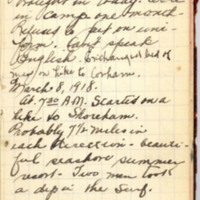 brought in today. Were
in Camp one month
Refused to put on uni-
form. Cant speak
English. Exchanged bed of
me, on hike to Corham.
March 8, 1918.
At 7:00 A.M. Started on a
hike to Shoreham.
Probably 7½ miles in
each direction - beauti-
ful seashore summer
resort - Two men took
a dip in the Surf.